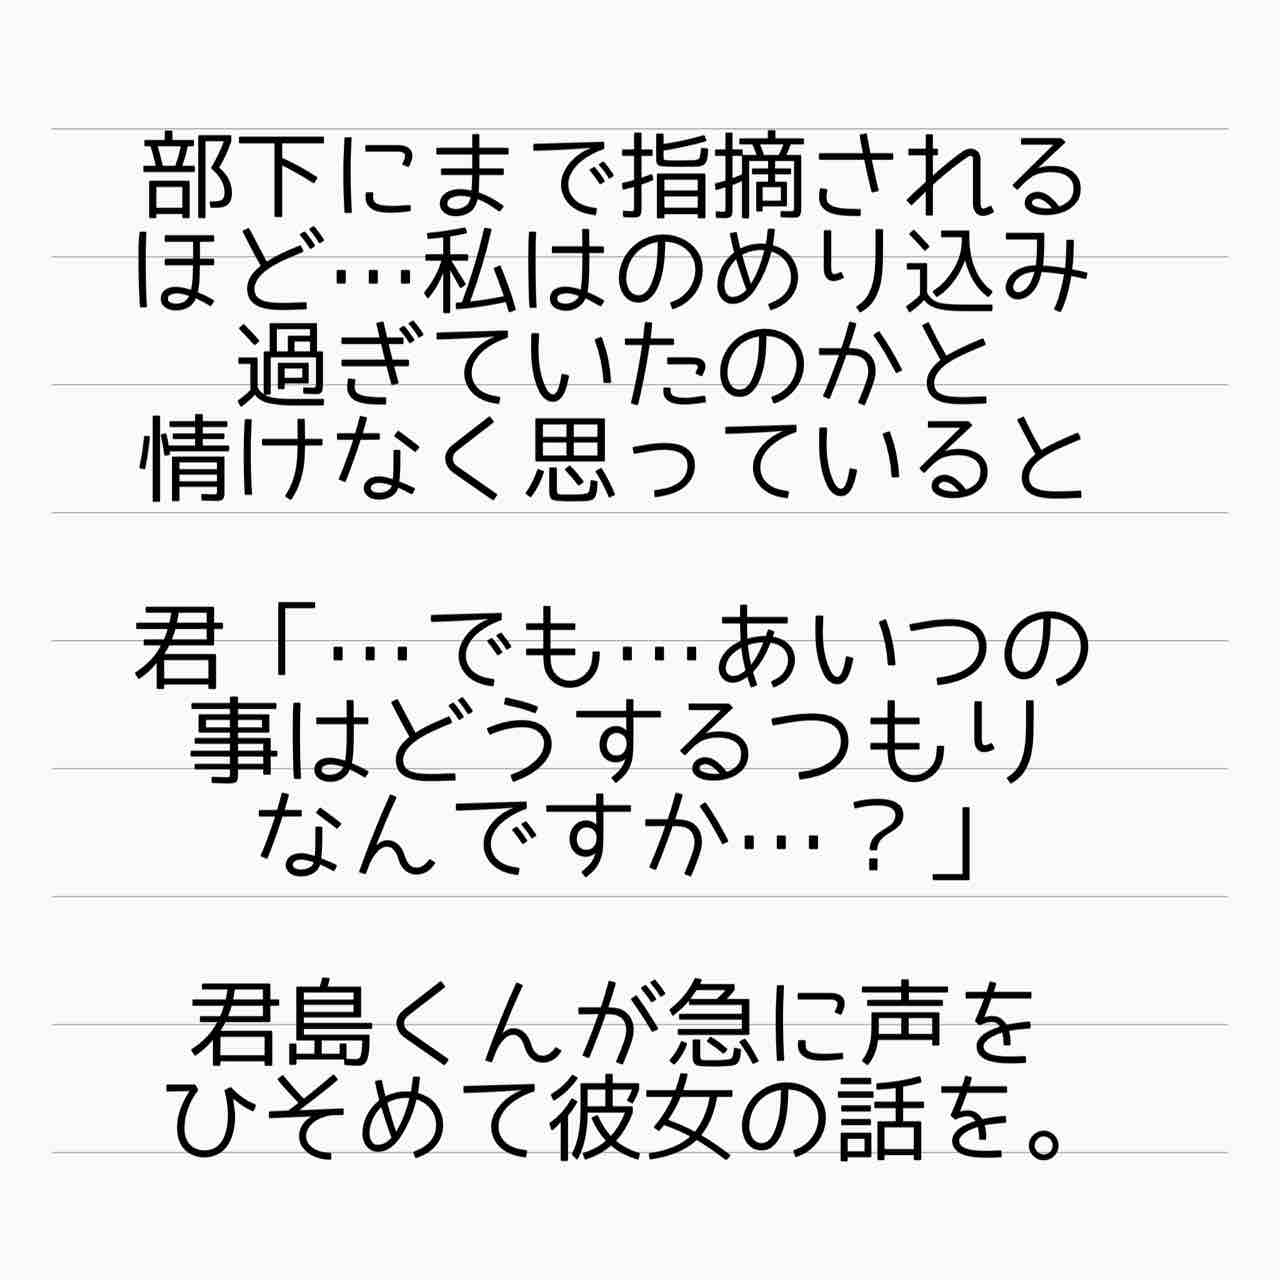 部下にまで指摘される
ほど…私はのめり込み
過ぎていたのかと
情けなく思っていると
君「…でも…あいつの
事はどうするつもり
なんですか…？」
君島くんが急に声を
ひそめて彼女の話を。